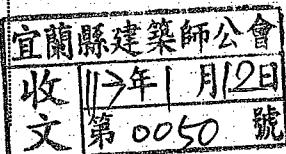 宜蘭縣建築師公會
收文
117年1月12日
第0050號